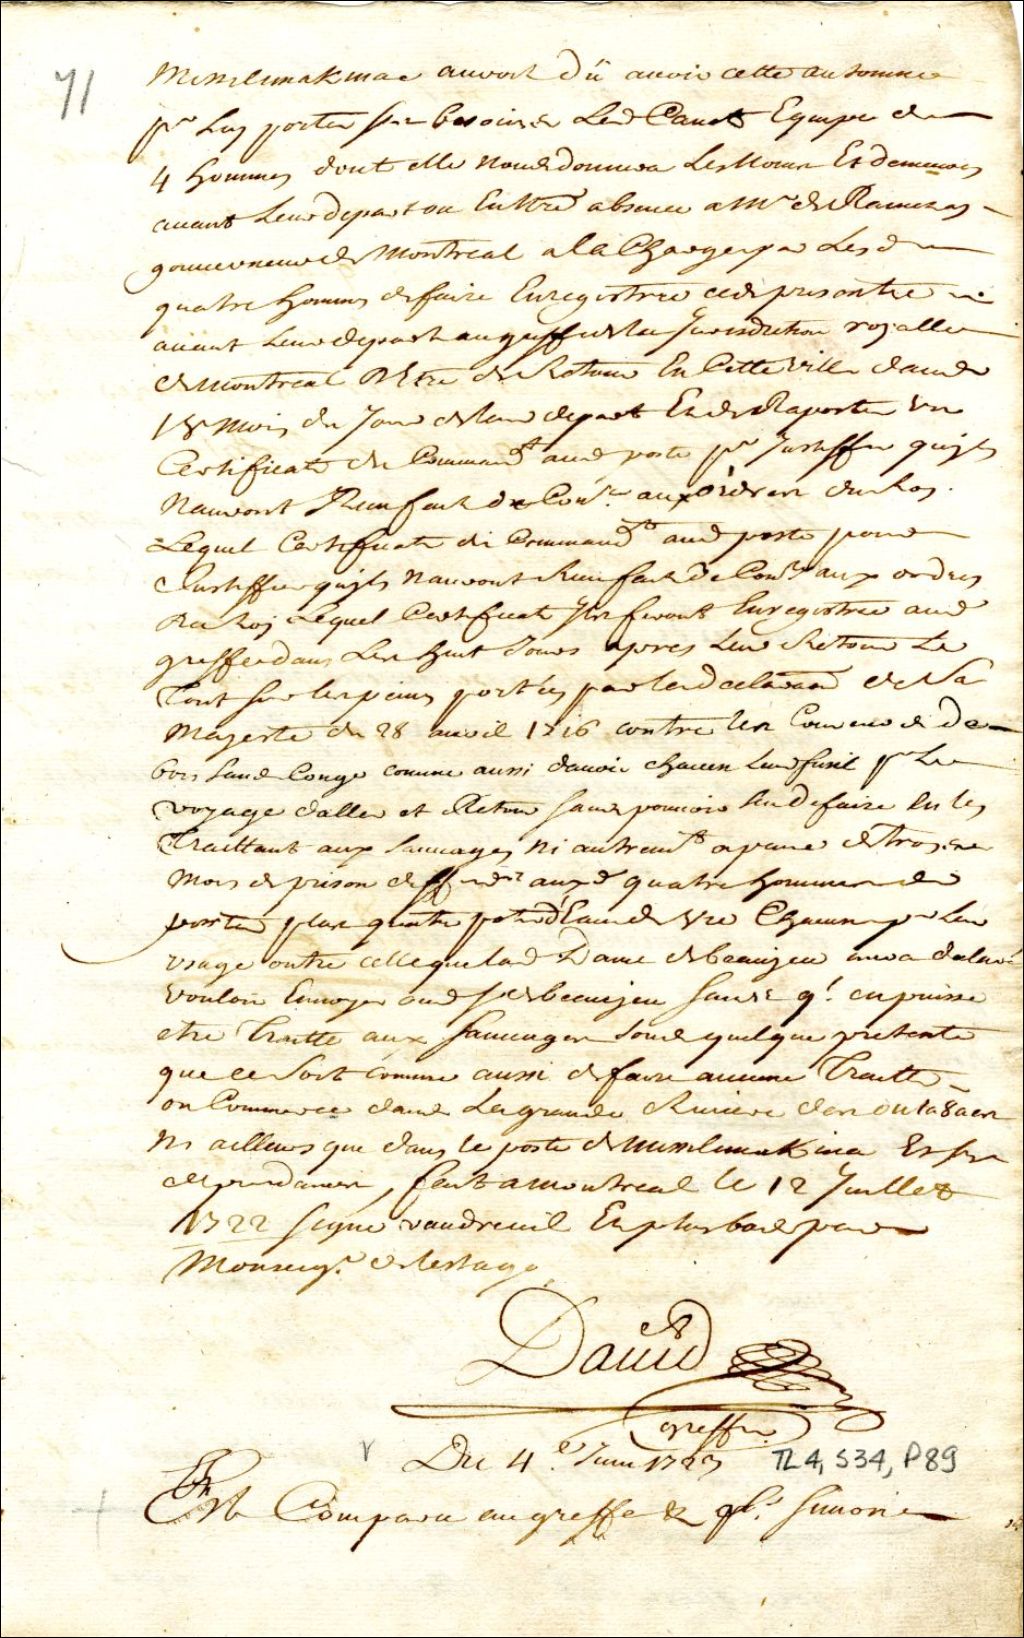 71
Missilimakinac auroit dû avoir cette automne
pr Luy porter ses besoins Led Canot Equipé de
4 hommes dont elle nous donnera Les Noms Et demeures
avant Leur depart ou En Nre absence a Mr de Ramezay
gouverneur de Montreal a la Charge par Lesd
quatre hommes de faire Enregistrer ces presentes
avant Leur depart au greffe de la Jurisdiction royalle
de Montreal D'Etre de Retour En Cette Ville dans
18 mois du Jour de leur depart Et de Raporter un
Certificat du Commandt aud poste pr Justiffier quils
Nauront Rien fait de Conre aux ordres du Roy.
Lequel Certificat du Commandt aud poste pour
Justiffier quils nauront Rien fait de Conre aux ordres
Du Roy Lequel Certificat Ils feront Enregistrer aud
greffe dans Les huit Jours apres Leur Retour Le
Tout sur les peines portées par la declaraon de Sa
Majesté du 28 avril 1716 contre les Coureurs de
bois sans Congé comme aussi davoir chacun Leur fusil pr Le
voyage daller et Retour sans pouvoir sen defaire En les
Traittant aux Sauvages ni autremt a peine de trois
mois de prison deffendons auxd quatre hommes de
porter plus quatre pots d'Eau de vie Chacun pr Leur
usage outre celle que lad Dame de beaujeu aura
vouloir Envoyer aud Sr de beaujeu sans q. en puisse
etre Traitté aux Sauvages sous quelque pretexte
que ce soit comme aussi de faire aucune Traitte
ou Commerce dans La grande Riviere des outa8acs
ni ailleurs que dans le poste de missilimakina Et ses
dependances, fait a montreal le 12 Juillet
1722 signé vaudreuil Et plus bas par
Monseigr. de lestage
David
Greffier
Du 4e. Juin 1723
TL4, S34, P89
Est Comparu au greffe Le Sr. Simon